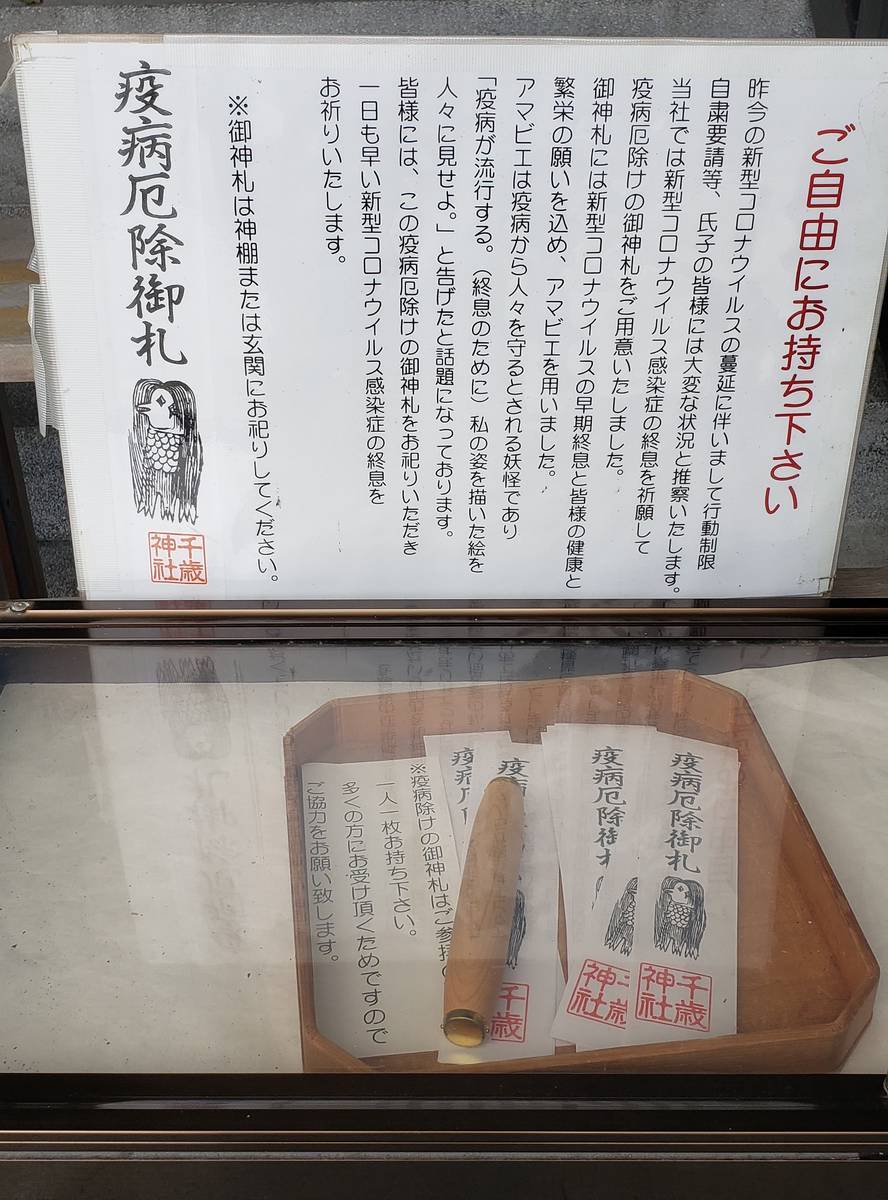 ご自由にお持ち下さい
昨今の新型コロナウイルスの蔓延に伴いまして行動制限
自粛要請等、氏子の皆様には大変な状況と推察いたします。
当社では新型コロナウイルス感染症の終息を祈願して
疫病厄除けの御神札をご用意いたしました。
御神札には新型コロナウイルスの早期終息と皆様の健康と
繁栄の願いを込め、アマビエを用いました。
アマビエは疫病から人々を守るとされる妖怪であり
「疫病が流行する。（終息のために）私の姿を描いた絵を
人々に見せよ。」と告げたと話題になっております。
皆様には、この疫病厄除けの御神札をお祀りいただき
一日も早い新型コロナウイルス感染症の終息を
お祈りいたします。
※御神札は神棚または玄関にお祀りしてください。
疫病厄除御札
千歳
神社
疫病厄除御札
千歳
神社
疫病厄除御札
千歳
神社
疫
千歳
疫病
※疫病除けの御神札はご参拝
一人一枚お持ち下さい。
多くの方にお受け頂くためですので
ご協力をお願い致します。